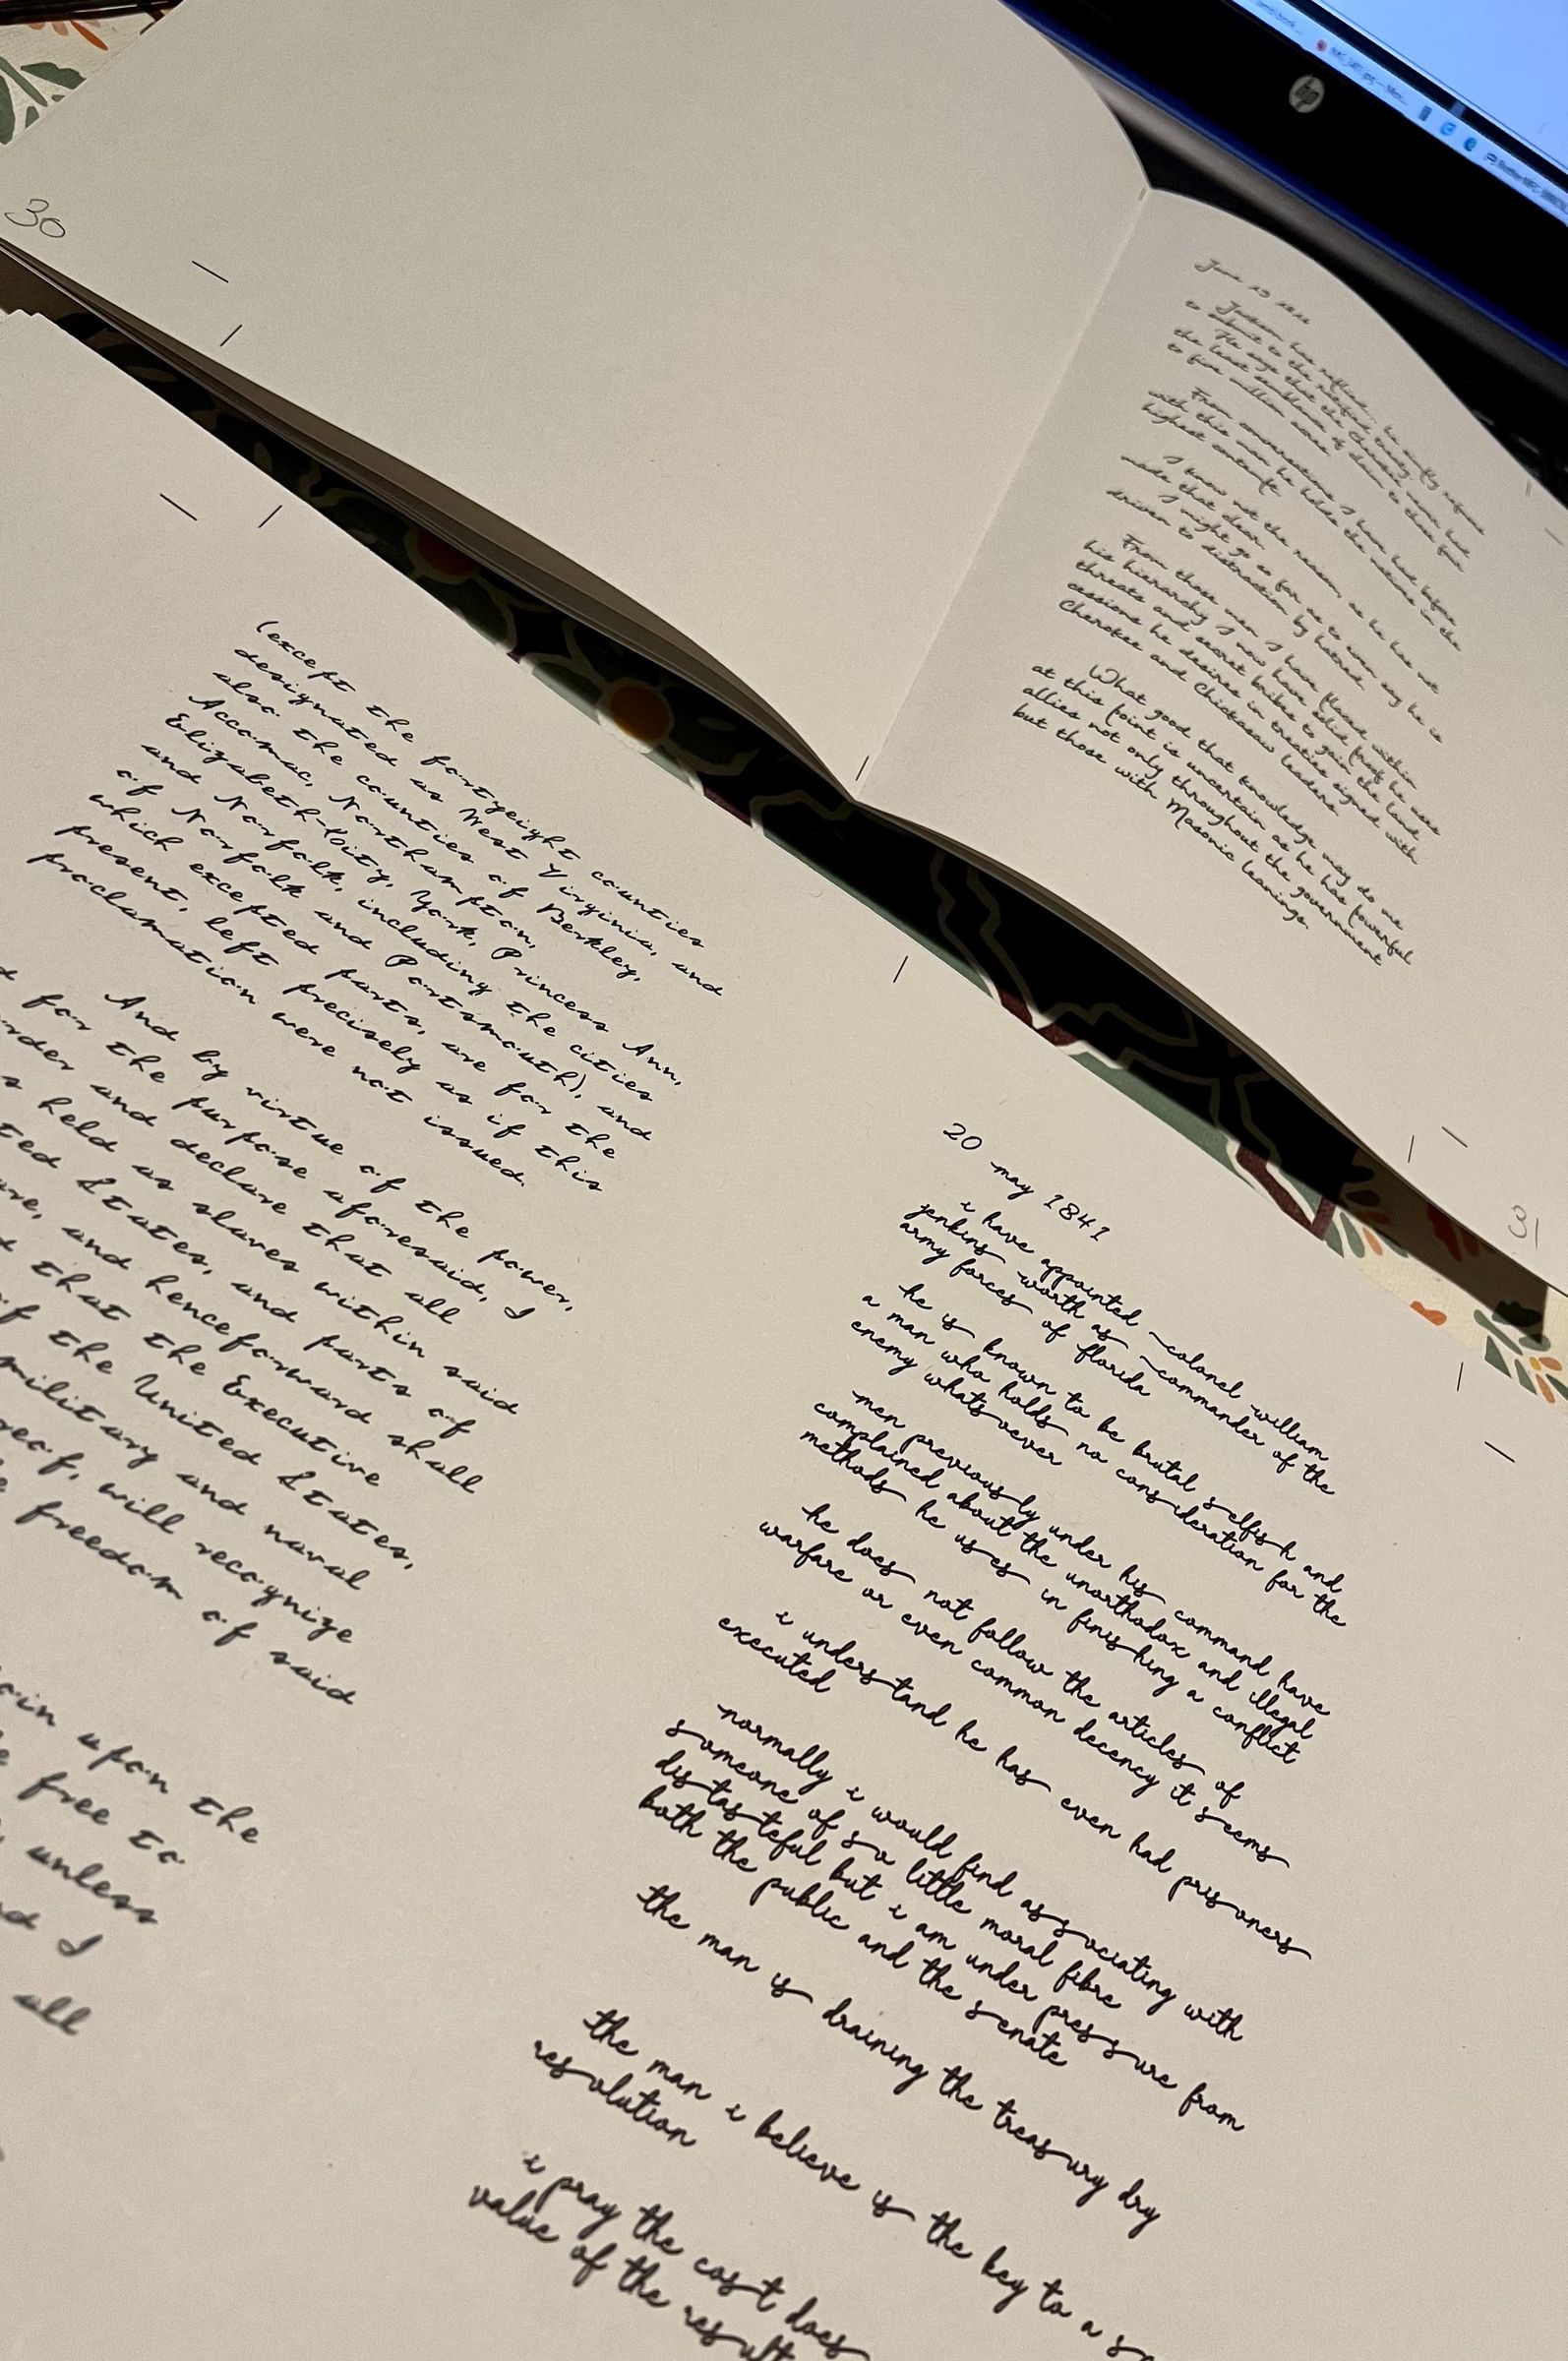 30
June 13
Jackson has
to submit to the
He says that the Cherokee never had
the least semblance of claim to those four
to five million acres.
From conversations I have had before
with this man he holds the natives in the
highest contempt.
I know not the reason, as he has not
made that clear.
I might go so far as to even say he is
driven to distraction by hatred.
From those men I have placed within
his hierarchy I now have solid proof he uses
threats and secret bribes to gain the land
cessions he desires in treaties signed with
Cherokee and Chickasaw leaders.
What good that knowledge may do me
at this point is uncertain as he has powerful
allies not only throughout the government
but those with Masonic leanings.
31
(except the fortyeight counties
designated as West Virginia, and
also the counties of Berkley,
Accomac, Northampton,
Elizabeth-City, York, Princess Ann,
and Norfolk, including the cities
of Norfolk and Portsmouth), and
which excepted parts, are for the
present, left precisely as if this
proclamation were not issued.
And by virtue of the power,
for the purpose aforesaid, I
order and declare that all
held as slaves within said
States, and parts of
and henceforward shall
that the Executive
of the United States,
military and naval
will recognize
freedom of said
upon the
free to
unless
I
all
20 may 1841
i have appointed colonel william
jenkins worth as commander of the
army forces of florida
he is known to be brutal selfish and
a man who holds no consideration for the
enemy whatsoever
men previously under his command have
complained about the unorthodox and illegal
methods he uses in finishing a conflict
he does not follow the articles of
warfare or even common decency it seems
i understand he has even had prisoners
executed
normally i would find associating with
someone of so little moral fibre
distasteful but i am under pressure from
both the public and the senate
the man is draining the treasury dry
the man i believe is the key to a
resolution
i pray the cost does
value of the result
hp